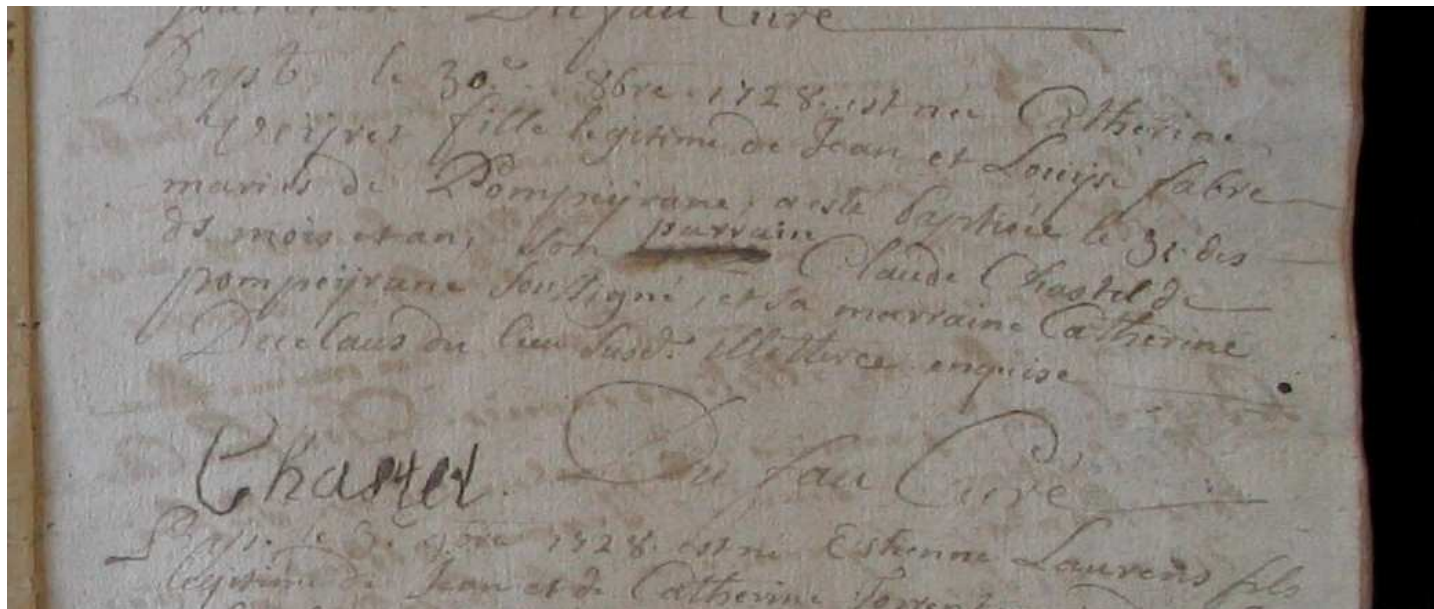 Du fau Curé
Bapt. le 30e. 8bre. 1728. est née Catherine
fille legitime de Jean et Louyse fabre
mariés de Pompeyrane, a esté baptisée le 31. des
ds mois et an, son parrain Claude Chastel de
pompeyrane soussigné, et sa marraine Catherine
Duclaus du lieu susd. illetterée enquise
Chastel. Du fau Curé
Bapt. le 3e. 1728. est né Estienne Laurens fils
legitime de Jean et de Catherine